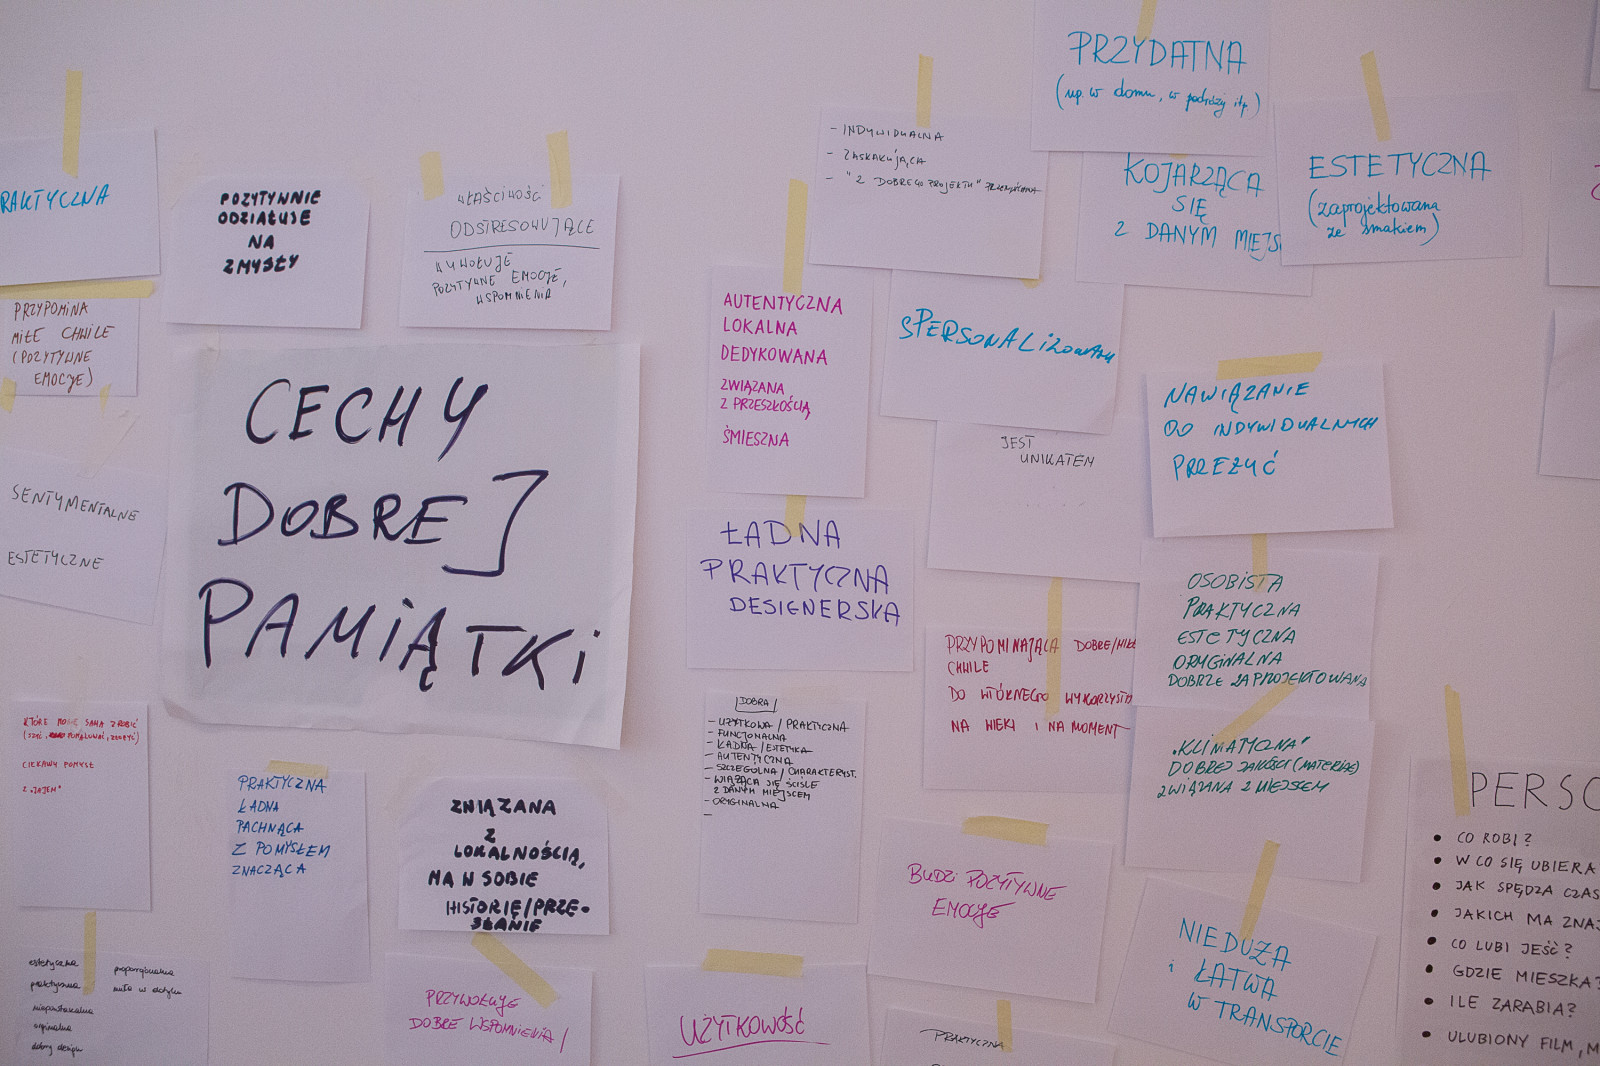 RAKTYCZNA
POZYTYWNIE
ODZIAŁUJE
NA
ZMYSŁY
WŁAŚCIWOŚCI
ODSTRESOWUJĄCE
WYWOŁUJE
POZYTYWNE EMOCJE,
WSPOMNIENIA
PRZYPOMINA
MIŁE CHWILE
(POZYTYWNE
EMOCJE)
CECHY
DOBREJ
PAMIĄTKI
SENTYMENTALNE
ESTETYCZNE
KTÓRE MOGĘ SAMA ZROBIĆ
CIEKAWY POMYSŁ
Z "JAJEM"
PRAKTYCZNA
ŁADNA
PACHNĄCA
Z POMYSŁEM
ZNACZĄCA
ZWIĄZANA
Z
LOKALNOŚCIĄ,
MA W SOBIE
HISTORIĘ/PRZE-
SŁANIE
estetyczna
praktyczna
niepowtarzalna
orginalna
dobry design
proporcjonalna
miła w dotyku
PRZYWOŁUJE
DOBRE WSPOMNIENIA /
- INDYWIDUALNA
- ZASKAKUJĄCA
- "Z DOBREGO PROJEKTU"
PRZYDATNA
(np. w domu, w podróży itp.)
KOJARZĄCA
SIĘ
Z DANYM MIEJS
ESTETYCZNA
(zaprojektowana
ze smakiem)
AUTENTYCZNA
LOKALNA
DEDYKOWANA
ZWIĄZANA
Z PRZESZŁOŚCIĄ
ŚMIESZNA
SPERSONALIZOWANA
JEST
UNIKATEM
NAWIĄZANIE
DO INDYWIDUALNYCH
PRZEŻYĆ
ŁADNA
PRAKTYCZNA
DESIGNERSKA
OSOBISTA
PRAKTYCZNA
ESTETYCZNA
ORYGINALNA
DOBRZE ZAPROJEKTOWANA
PRZYPOMINAJĄCA DOBRE/MIŁE
CHWILE
DO WTÓRNEGO WYKORZYST
NA WIEKI I NA MOMENT
DOBRA
- UŻYTKOWA / PRAKTYCZNA
- FUNCJONALNA
- ŁADNA / ESTETYKA
- AUTENTYCZNA
- SZCZEGÓLNA / CHARAKTERYST.
- WIĄŻĄCA SIĘ ŚCIŚLE
Z DANYM MIEJSCEM
- ORYGINALNA
-
"KLIMATYCZNA"
DOBREJ JAKOŚCI (MATERIAŁ)
ZWIĄZANA Z MIEJSCEM
BUDZI POZYTYWNE
EMOCJE
NIEDUŻA
i ŁATWA
W TRANSPORCIE
UŻYTKOWOŚĆ
PRAKTYCZNA
PERSO
• CO ROBI?
• W CO SIĘ UBIERA
• JAK SPĘDZA CZAS
• JAKICH MA ZNAJ
• CO LUBI JEŚĆ?
• GDZIE MIESZKA?
• ILE ZARABIA?
• ULUBIONY FILM, M